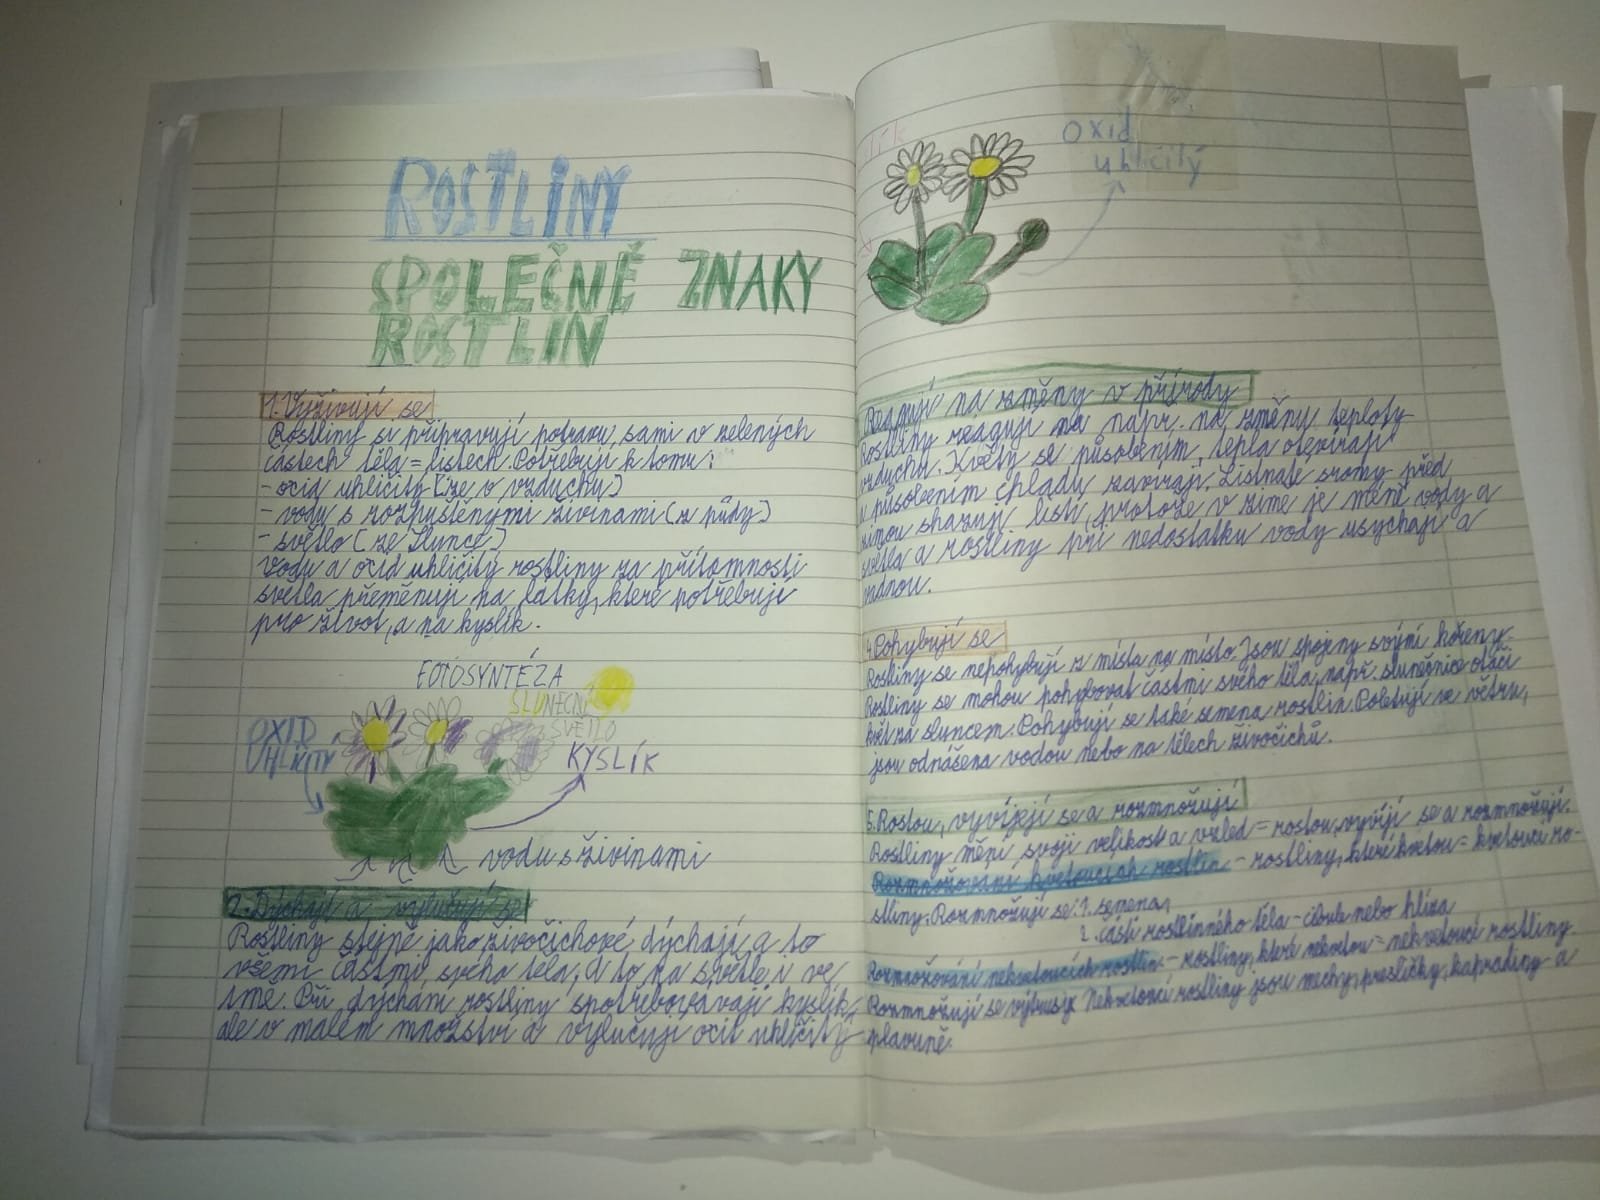 ROSTLINY
SPOLEČNÉ ZNAKY
ROSTLIN
1. Vyživují se
Rostliny si připravují potravu, sami v zelených
částech těla = listech. Potřebují k tomu:
- oxid uhličitý (ze v vzduchu)
- vodu s rozpuštěnými živinami (z půdy)
- světlo (ze Slunce)
Vodu a oxid uhličitý rostliny za přítomnosti
světla přeměňují na látky, které potřebují
pro život, a na kyslík.
FOTOSYNTÉZA
SLUNEČNÍ
SVĚTLO
OXID
UHLIČITÝ
KYSLÍK
vodu s živinami
2. Dýchají a vylučují se
Rostliny stejně jako živočichové dýchají a to
všemi částmi svého těla, a to na světle i ve
tmě. Při dýchání rostliny spotřebovávají kyslík,
ale v malém množství a vylučují oxit uhličitý
lík
oxid
uhličitý
Reagují na změny v přírody
Rostliny reagují na např. na změny teploty
vzduchu. Květy se působením, tepla otevírají
a působením chladu zavírají. Listnaté stromy před
zimou shazují listí, protože v zimě je méně vody a
světla a rostliny při nedostatku vody usychají a
vadnou.
4. Pohybují se
Rostliny se nepohybují z místa na místo. Jsou spojeny svými kořeny.
Rostliny se mohou pohybovat částmi svého těla, např. slunečnice otáčí
květ za sluncem. Pohybují se také semena rostlin. Poletují ve větru,
jsou odnášena vodou nebo na tělech živočichů.
5. Rostou, vyvíjejí se a rozmnožují
Rostliny mění svoji velikost a vzhled = rostou, vyvíjí se a rozmnožují.
Rozmnožování kvetoucích rostlin - rostliny, které kvetou = kvetoucí ro-
stliny. Rozmnožují se: 1. semena,
2. částí rostlinného těla - cibule nebo hlíza
Rozmnožování nekvetoucích rostlin - rostliny, které nekvetou = nekvetoucí rostliny
Rozmnožují se výtrusy. Nekvetoucí rostliny jsou mechy, přesličky, kapradiny a
plavuně.